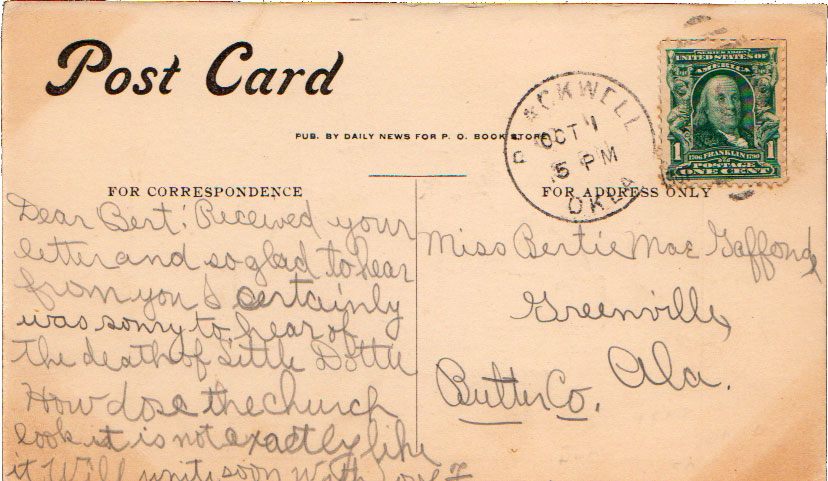 Post Card
PUB. BY DAILY NEWS FOR P. O. BOOK STORE
BLACKWELL
OCT 1
5 PM
OKLA
SERIES 1902
UNITED STATES OF
AMERICA
1 1706 FRANKLIN 1790 1
POSTAGE
ONE CENT
FOR CORRESPONDENCE
Dear Bert: Received your
letter and so glad to hear
from you I certainly
was sorry to hear of
the death of Little Dottie
How dose the church
look it is not exactly like
it Will write soon With love
FOR ADDRESS ONLY
Miss Bertie Mae Gafford
Greenville,
Butler Co. Ala.